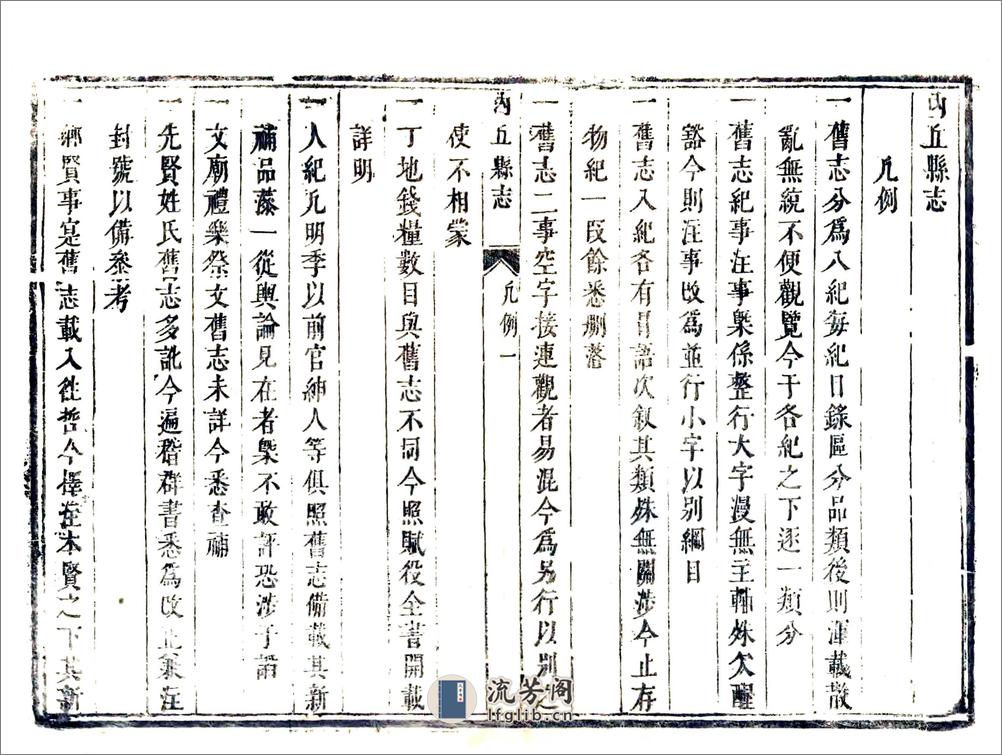 內丘縣志
凡例
一舊志分爲八紀每紀目錄區分品類後則渾載散
亂無統不便觀覽今于各紀之下逐一類分
一舊志紀事注事槩係整行大字漫無主軸殊欠醒
豁今則注事改爲並行小字以別綱目
一舊志八紀各有冒語次敘其類殊無關涉今止存
物紀一段餘悉刪落
一舊志二事空字接連觀者易混今爲另行以別之
內丘縣志
凡例一
使不相蒙
一丁地錢糧數目與舊志不同今照賦役全書開載
詳明
一人紀凡明季以前官紳人等俱照舊志備載其新
補品藻一從輿論見在者槩不敢評恐涉于諂
一文廟禮樂祭文舊志未詳今悉查補
一先賢姓氏舊志多訛今遍稽群書悉爲改正兼注
封號以備參考
一鄉賢事寔舊志載入往哲今擇注本賢之下其新
流芳阁
lfglib.cn